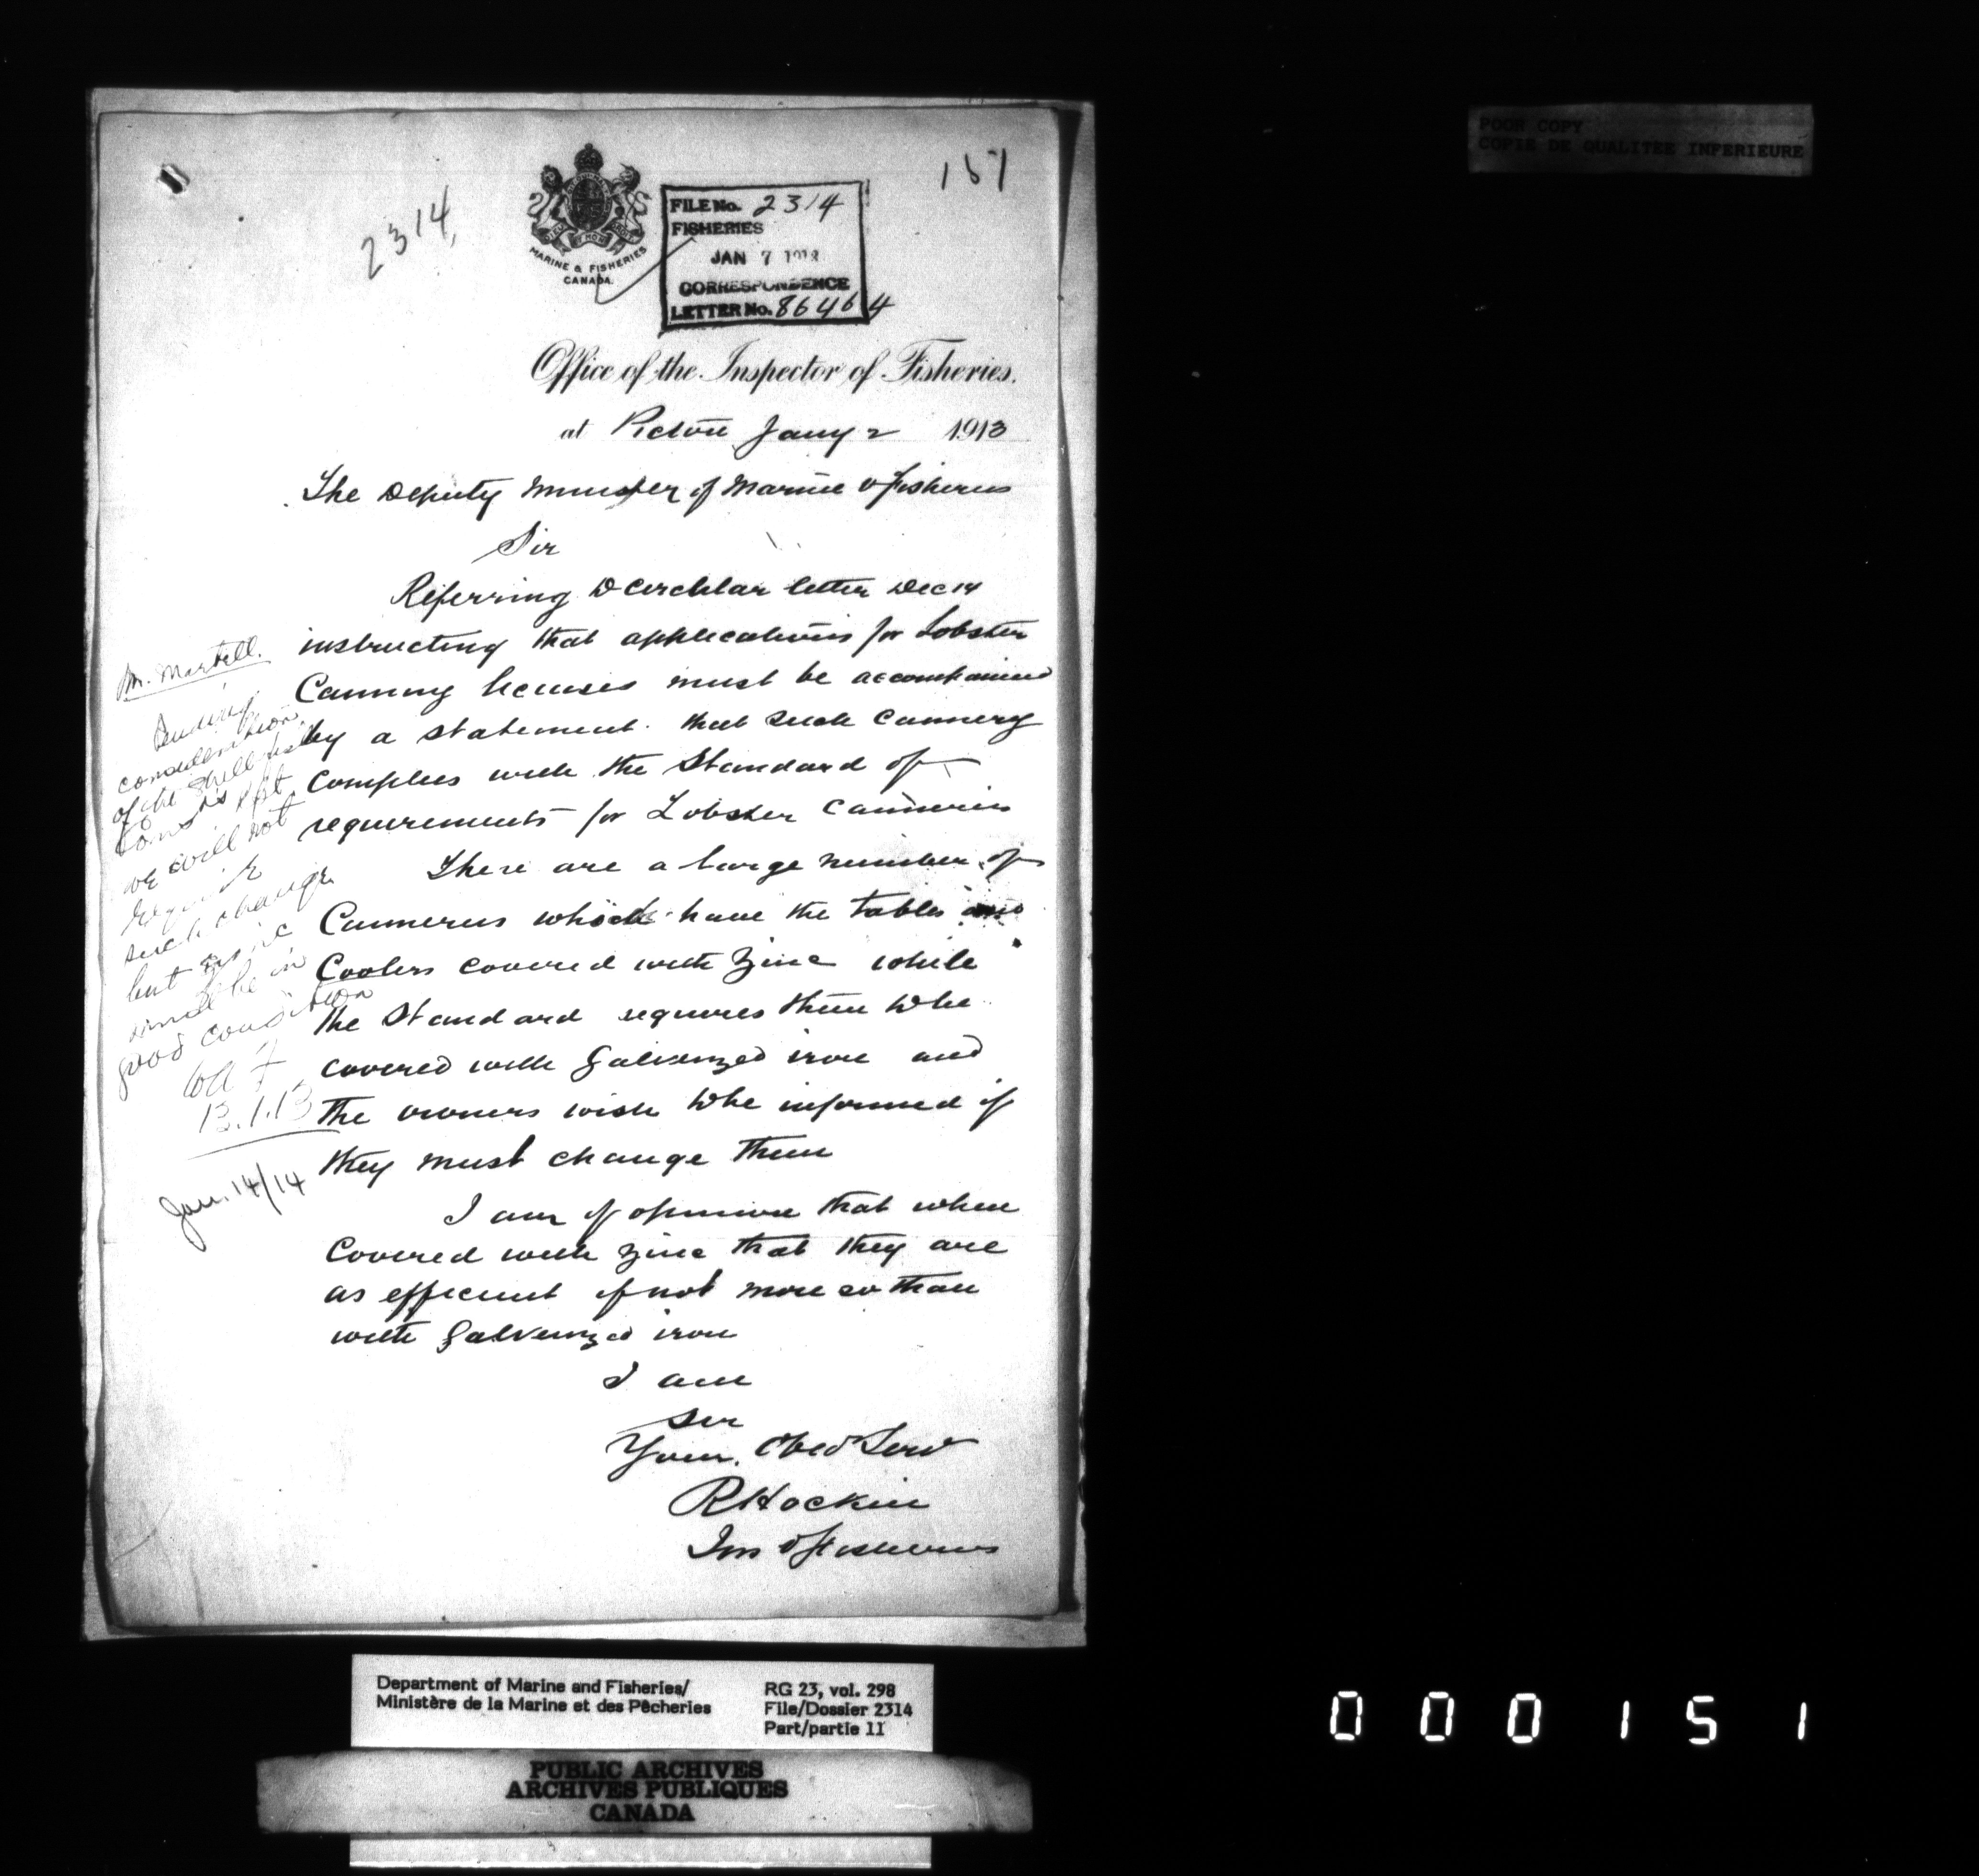 POOR COPY
COPIE DE QUALITEE INFERIEURE
157
2314
MARINE & FISHERIES
CANADA.
FILE No. 2314
FISHERIES
JAN 7 1913
CORRESPONDENCE
LETTER No. 86464
Office of the Inspector of Fisheries.
at Pictou Jany 2 1913
The Deputy Minister of Marine & Fisheries
Sir
Referring to Circular letter Dec 14
instructing that applications for Lobster
Canning licenses must be accompanied
by a statement that such Cannery
Complies with the Standard of
requirements for Lobster Canneries
There are a large number of
Canneries which have the tables and
Coolers covered with Zinc while
the Standard requires them to be
covered with Galvanized iron and
the owners wish to be informed if
they must change them
I am of opinion that when
Covered with zinc that they are
as efficient if not more so than
with Galvanized iron
I am
Sir
Your Obed Serv
R Hockin
Ins of Fisheries
Mr. Martell.
Pending
consideration
of the Shell fish
we will not
require
such change
but zinc
must be in
good condition
13.1.13
Jan. 14/14
Department of Marine and Fisheries/
Ministère de la Marine et des Pêcheries
RG 23, vol. 298
File/Dossier 2314
Part/partie 11
PUBLIC ARCHIVES
ARCHIVES PUBLIQUES
CANADA
000151